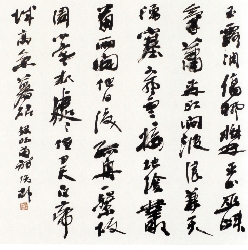 玉露凋傷楓樹林巫山巫峽
氣蕭森江間波浪兼天
湧塞上風雲接地陰叢
菊兩開他日淚孤舟一繫故
園心寒衣處處催刀尺白帝
城高急暮砧